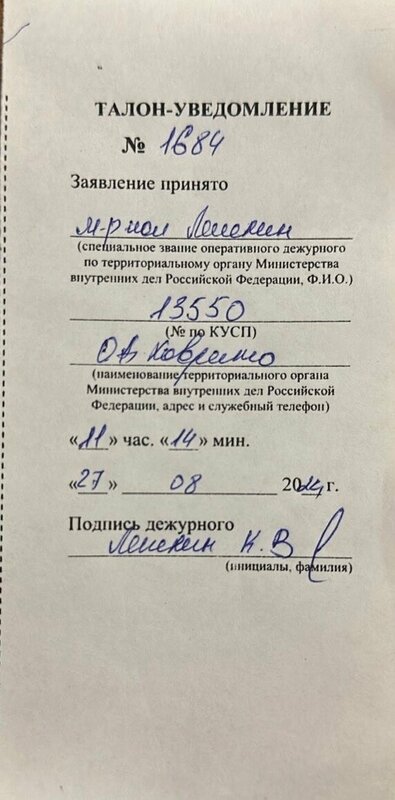 ТАЛОН-УВЕДОМЛЕНИЕ
№ 1684
Заявление принято
м-р пол
(специальное звание оперативного дежурного
по территориальному органу Министерства
внутренних дел Российской Федерации, Ф.И.О.)
13550
(№ по КУСП)
ОВ
(наименование территориального органа
Министерства внутренних дел Российской
Федерации, адрес и служебный телефон)
«11» час. «14» мин.
«27» 08 2024 г.
Подпись дежурного
К.В
(инициалы, фамилия)